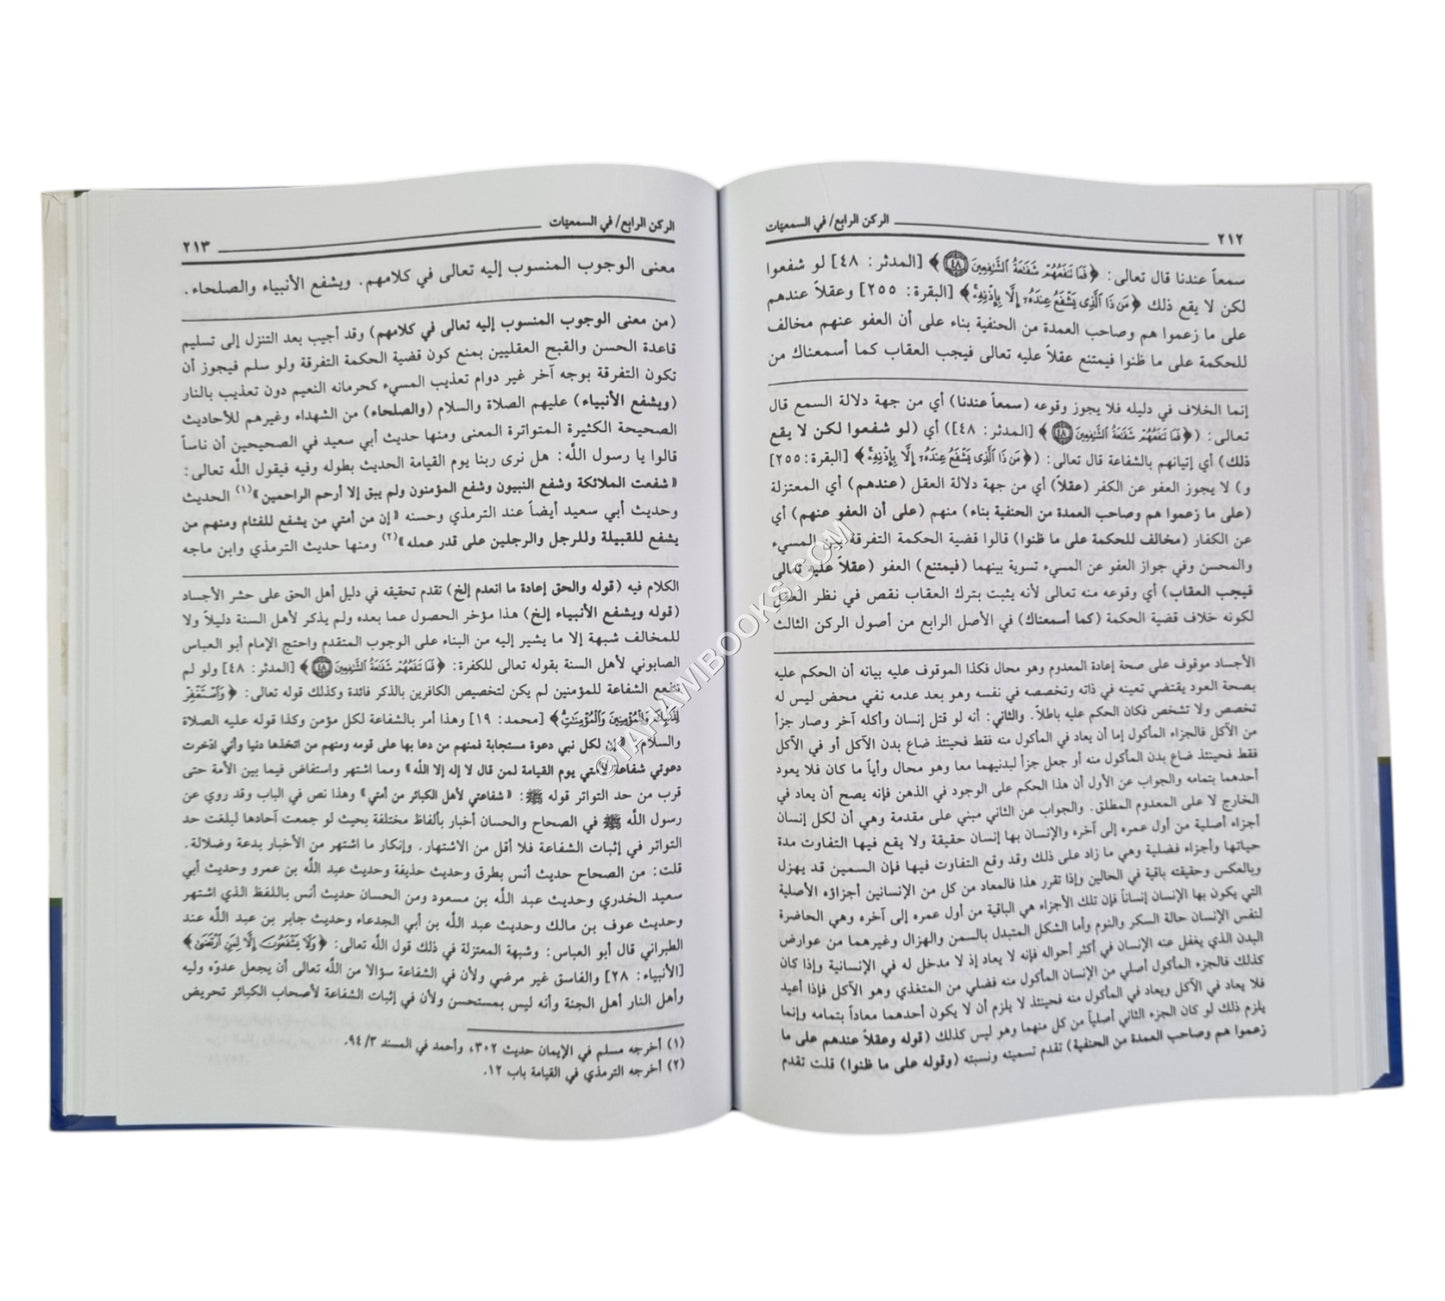 ٢١٢ الركن الرابع/ في السمعيّات
سمعاً عندنا قال تعالى: ﴿فَمَا تَنفَعُهُمْ شَفَٰعَةُ ٱلشَّٰفِعِينَ ٤٨﴾ [المدثر: ٤٨] لو شفعوا
لكن لا يقع ذلك ﴿مَن ذَا ٱلَّذِى يَشْفَعُ عِندَهُۥٓ إِلَّا بِإِذْنِهِۦ﴾ [البقرة: ٢٥٥] وعقلاً عندهم
على ما زعموا هم وصاحب العمدة من الحنفية بناء على أن العفو عنهم مخالف
للحكمة على ما ظنوا فيمتنع عقلاً عليه تعالى فيجب العقاب كما أسمعناك من
إنما الخلاف في دليله فلا يجوز وقوعه (سمعاً عندنا) أي من جهة دلالة السمع قال
تعالى: (﴿فَمَا تَنفَعُهُمْ شَفَٰعَةُ ٱلشَّٰفِعِينَ ٤٨﴾ [المدثر: ٤٨]) أي (لو شفعوا لكن لا يقع
ذلك) أي إتيانهم بالشفاعة قال تعالى: (﴿مَن ذَا ٱلَّذِى يَشْفَعُ عِندَهُۥٓ إِلَّا بِإِذْنِهِۦ﴾ [البقرة:٢٥٥]
و) لا يجوز العفو عن الكفر (عقلاً) أي من جهة دلالة العقل (عندهم) أي المعتزلة
(على ما زعموا هم وصاحب العمدة من الحنفية بناء) منهم (على أن العفو عنهم) أي
عن الكفار (مخالف للحكمة على ما ظنوا) قالوا قضية الحكمة التفرقة بين المسيء
والمحسن وفي جواز العفو عن المسيء تسوية بينهما (فيمتنع) العفو (عقلاً عليه تعالى
فيجب العقاب) أي وقوعه منه تعالى لأنه يثبت بترك العقاب نقص في نظر العقل
لكونه خلاف قضية الحكمة (كما أسمعناك) في الأصل الرابع من أصول الركن الثالث
الأجساد موقوف على صحة إعادة المعدوم وهو محال فكذا الموقوف عليه بيانه أن الحكم عليه
بصحة العود يقتضي تعينه في ذاته وتخصصه في نفسه وهو بعد عدمه نفي محض ليس له
تخصص ولا تشخص فكان الحكم عليه باطلاً. والثاني: أنه لو قتل إنسان وأكله آخر وصار جزأ
من الآكل فالجزء المأكول إما أن يعاد في المأكول منه فقط فحينئذ ضاع بدن الآكل أو في الآكل
فقط فحينئذ ضاع بدن المأكول منه أو جعل جزأ لبدنيهما معا وهو محال وأياً ما كان فلا يعود
أحدهما بتمامه والجواب عن الأول أن هذا الحكم على الوجود في الذهن فإنه يصح أن يعاد في
الخارج لا على المعدوم المطلق. والجواب عن الثاني مبني على مقدمة وهي أن لكل إنسان
أجزاء أصلية من أول عمره إلى آخره والإنسان بها إنسان حقيقة ولا يقع فيها التفاوت مدة
حياتها وأجزاء فضلية وهي ما زاد على ذلك وقد وقع التفاوت فيها فإن السمين قد يهزل
وبالعكس وحقيقته باقية في الحالين وإذا تقرر هذا فالمعاد من كل من الإنسانين أجزاؤه الأصلية
التي يكون بها الإنسان إنساناً فإن تلك الأجزاء هي الباقية من أول عمره إلى آخره وهي الحاضرة
لنفس الإنسان حالة السكر والنوم وأما الشكل المتبدل بالسمن والهزال وغيرهما من عوارض
البدن الذي يغفل عنه الإنسان في أكثر أحواله فإنه لا يعاد إذ لا مدخل له في الإنسانية وإذا كان
كذلك فالجزء المأكول أصلي من الإنسان المأكول منه فضلي من المتغذي وهو الآكل فإذا أعيد
فلا يعاد في الآكل ويعاد في المأكول منه فحينئذ لا يلزم أن لا يكون أحدهما معاداً بتمامه وإنما
يلزم ذلك لو كان الجزء الثاني أصلياً من كل منهما وهو ليس كذلك (قوله وعقلاً عندهم على ما
زعموا هم وصاحب العمدة من الحنفية) تقدم تسميته ونسبته (وقوله على ما ظنوا) قلت تقدم
الركن الرابع/ في السمعيّات ٢١٣
معنى الوجوب المنسوب إليه تعالى في كلامهم. ويشفع الأنبياء والصلحاء.
(من معنى الوجوب المنسوب إليه تعالى في كلامهم) وقد أجيب بعد التنزل إلى تسليم
قاعدة الحسن والقبح العقليين بمنع كون قضية الحكمة التفرقة ولو سلم فيجوز أن
تكون التفرقة بوجه آخر غير دوام تعذيب المسيء كحرمانه النعيم دون تعذيب بالنار
(ويشفع الأنبياء) عليهم الصلاة والسلام (والصلحاء) من الشهداء وغيرهم للأحاديث
الصحيحة الكثيرة المتواترة المعنى ومنها حديث أبي سعيد في الصحيحين أن ناساً
قالوا يا رسول اللّه: هل نرى ربنا يوم القيامة الحديث بطوله وفيه فيقول اللّه تعالى:
«شفعت الملائكة وشفع النبيون وشفع المؤمنون ولم يبق إلا أرحم الراحمين»(١) الحديث
وحديث أبي سعيد أيضاً عند الترمذي وحسنه «إن من أمتي من يشفع للفئام ومنهم من
يشفع للقبيلة وللرجل والرجلين على قدر عمله»(٢) ومنها حديث الترمذي وابن ماجه
الكلام فيه (قوله والحق إعادة ما انعدم إلخ) تقدم تحقيقه في دليل أهل الحق على حشر الأجساد
(قوله ويشفع الأنبياء إلخ) هذا مؤخر الحصول عما بعده ولم يذكر لأهل السنة دليلاً ولا
للمخالف شبهة إلا ما يشير إليه من البناء على الوجوب المتقدم واحتج الإمام أبو العباس
الصابوني لأهل السنة بقوله تعالى للكفرة: ﴿فَمَا تَنفَعُهُمْ شَفَٰعَةُ ٱلشَّٰفِعِينَ ٤٨﴾ [المدثر: ٤٨] ولو لم
تنفع الشفاعة للمؤمنين لم يكن لتخصيص الكافرين بالذكر فائدة وكذلك قوله تعالى: ﴿وَٱسْتَغْفِرْ
لِذَنۢبِكَ وَلِلْمُؤْمِنِينَ وَٱلْمُؤْمِنَٰتِ﴾ [محمد: ١٩] وهذا أمر بالشفاعة لكل مؤمن وكذا قوله عليه الصلاة
والسلام: «إن لكل نبي دعوة مستجابة فمنهم من دعا بها على قومه ومنهم من اتخذها دنيا وأني ادخرت
دعوتي شفاعة لأمتي يوم القيامة لمن قال لا إله إلا اللّه» ومما اشتهر واستفاض فيما بين الأمة حتى
قرب من حد التواتر قوله ﷺ: «شفاعتي لأهل الكبائر من أمتي» وهذا نص في الباب وقد روي عن
رسول اللّه ﷺ في الصحاح والحسان أخبار بألفاظ مختلفة بحيث لو جمعت آحادها لبلغت حد
التواتر في إثبات الشفاعة فلا أقل من الاشتهار. وإنكار ما اشتهر من الأخبار بدعة وضلالة.
قلت: من الصحاح حديث أنس بطرق وحديث حذيفة وحديث عبد اللّه بن عمرو وحديث أبي
سعيد الخدري وحديث عبد اللّه بن مسعود ومن الحسان حديث أنس باللفظ الذي اشتهر
وحديث عوف بن مالك وحديث عبد اللّه بن أبي الجدعاء وحديث جابر بن عبد اللّه عند
الطبراني قال أبو العباس: وشبهة المعتزلة في ذلك قول اللّه تعالى: ﴿وَلَا يَشْفَعُونَ إِلَّا لِمَنِ ٱرْتَضَىٰ﴾
[الأنبياء: ٢٨] والفاسق غير مرضي ولأن في الشفاعة سؤالا من اللّه تعالى أن يجعل عدوّه وليه
وأهل النار أهل الجنة وأنه ليس بمستحسن ولأن في إثبات الشفاعة لأصحاب الكبائر تحريض
(١) أخرجه مسلم في الإيمان حديث ٣٠٢، وأحمد في المسند ٣/ ٩٤.
(٢) أخرجه الترمذي في القيامة باب ١٢.
©JAHAWIBOOKS.COM